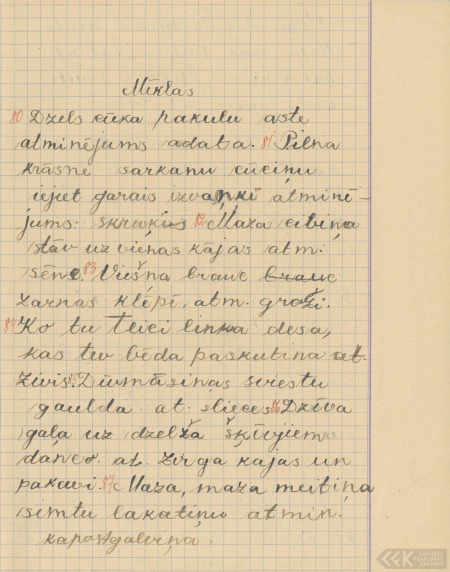 Mīklas
80 Dzels cūka pakulu aste
atminējums adata. 81 Pilna
krāsne sarkanu cūciņu
ieiet garais izvaņķī atminē-
jums: skrukis 82 Maza cibiņa
stāv uz vienas kājas atm:
sēne. 83 Viešņa brauc brauc
zarnas klēpī. atm. groži.
84 Ko tu teici linka desa,
kas tev bēda paskutina at.
zivis. Divmāsiņas sviestu
gaulda. at. slieces 86 Dzīva
gaļa uz dzelža šķīvjiem
danco. at. zirga kājas un
pakavi. 87 Maza, maza meitiņa
simtu lakatiņu atmin.
kapostgalviņa.
LATVIEŠU FOLKLORAS KRĀTUVE